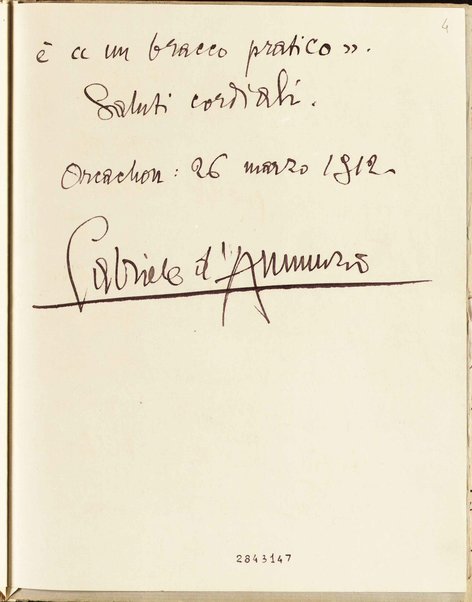 4
è a un bracco pratico».
Saluti cordiali.
Arcachon: 26 marzo 1912.
Gabriele d'Annunzio
2843147